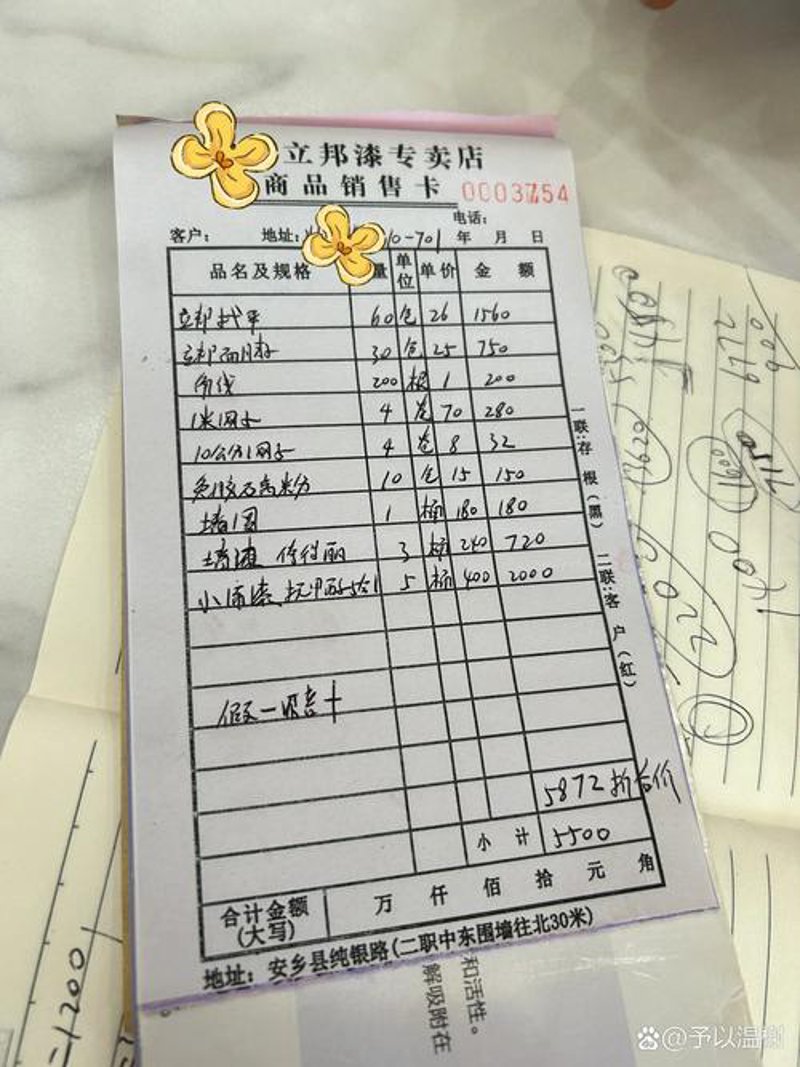 立邦漆专卖店
商品销售卡 0003754
电话:
客户: 地址: 10-701 年 月 日
品名及规格 量 单位 单价 金 额
立邦找平 60 包 26 1560
立邦面腻子 30 包 25 750
角线 200 根 1 200
1米网子 4 卷 70 280
10公分网子 4 卷 8 32
免胶及高粉 10 包 15 150
墙固 1 桶 180 180
墙漆 3 桶 240 720
小 漆 抗甲醛5合1 5 桶 400 2000
假一赔十
5872 折后价
小 计 5500
合计金额(大写) 万 仟 佰 拾 元 角
地址: 安乡县纯银路(二职中东围墙往北30米)
一联:存根(黑) 二联:客户(红)
和活性。
解吸附在
=1200
@予以温